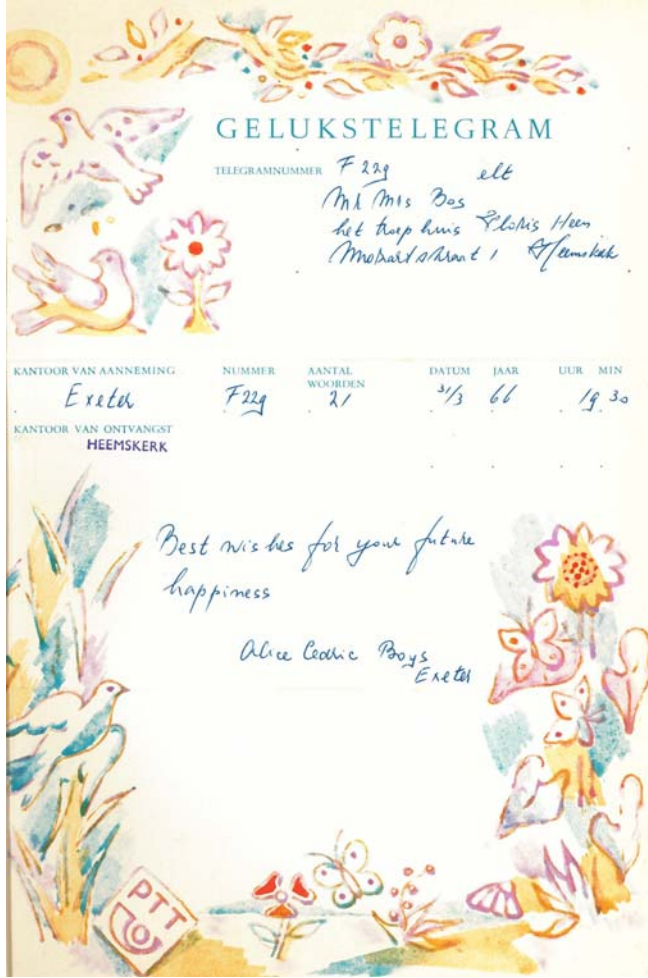 GELUKSTELEGRAM
TELEGRAMNUMMER F 229 elt
Mr Mrs Bos
het trep huis Floris Heem
Mozartstraat 1 Heemskerk
KANTOOR VAN AANNEMING NUMMER AANTAL WOORDEN DATUM JAAR UUR MIN
Exeter F229 21 31/3 66 19 30
KANTOOR VAN ONTVANGST
HEEMSKERK
Best wishes for your future
happiness
Alice Cedric Boys
Exeter
PTT